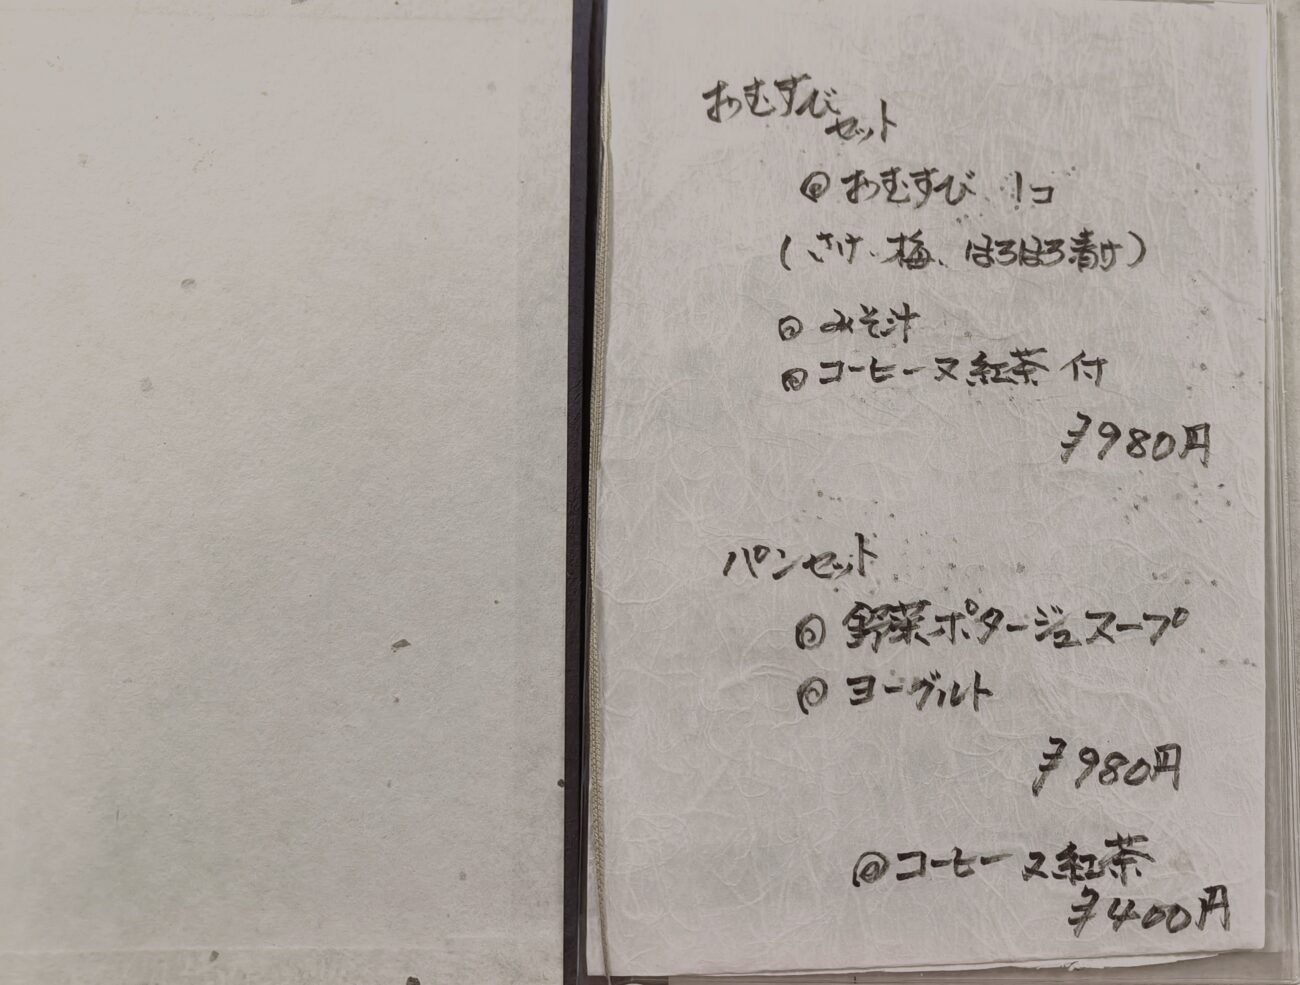 おむすびセット
◎ おむすび 1コ
(さけ、梅、ほろほろ漬け)
◎ みそ汁
◎ コーヒー又紅茶 付
¥980円
パンセット
◎ 野菜ポタージュスープ
◎ ヨーグルト
¥980円
◎ コーヒー 又紅茶
¥400円